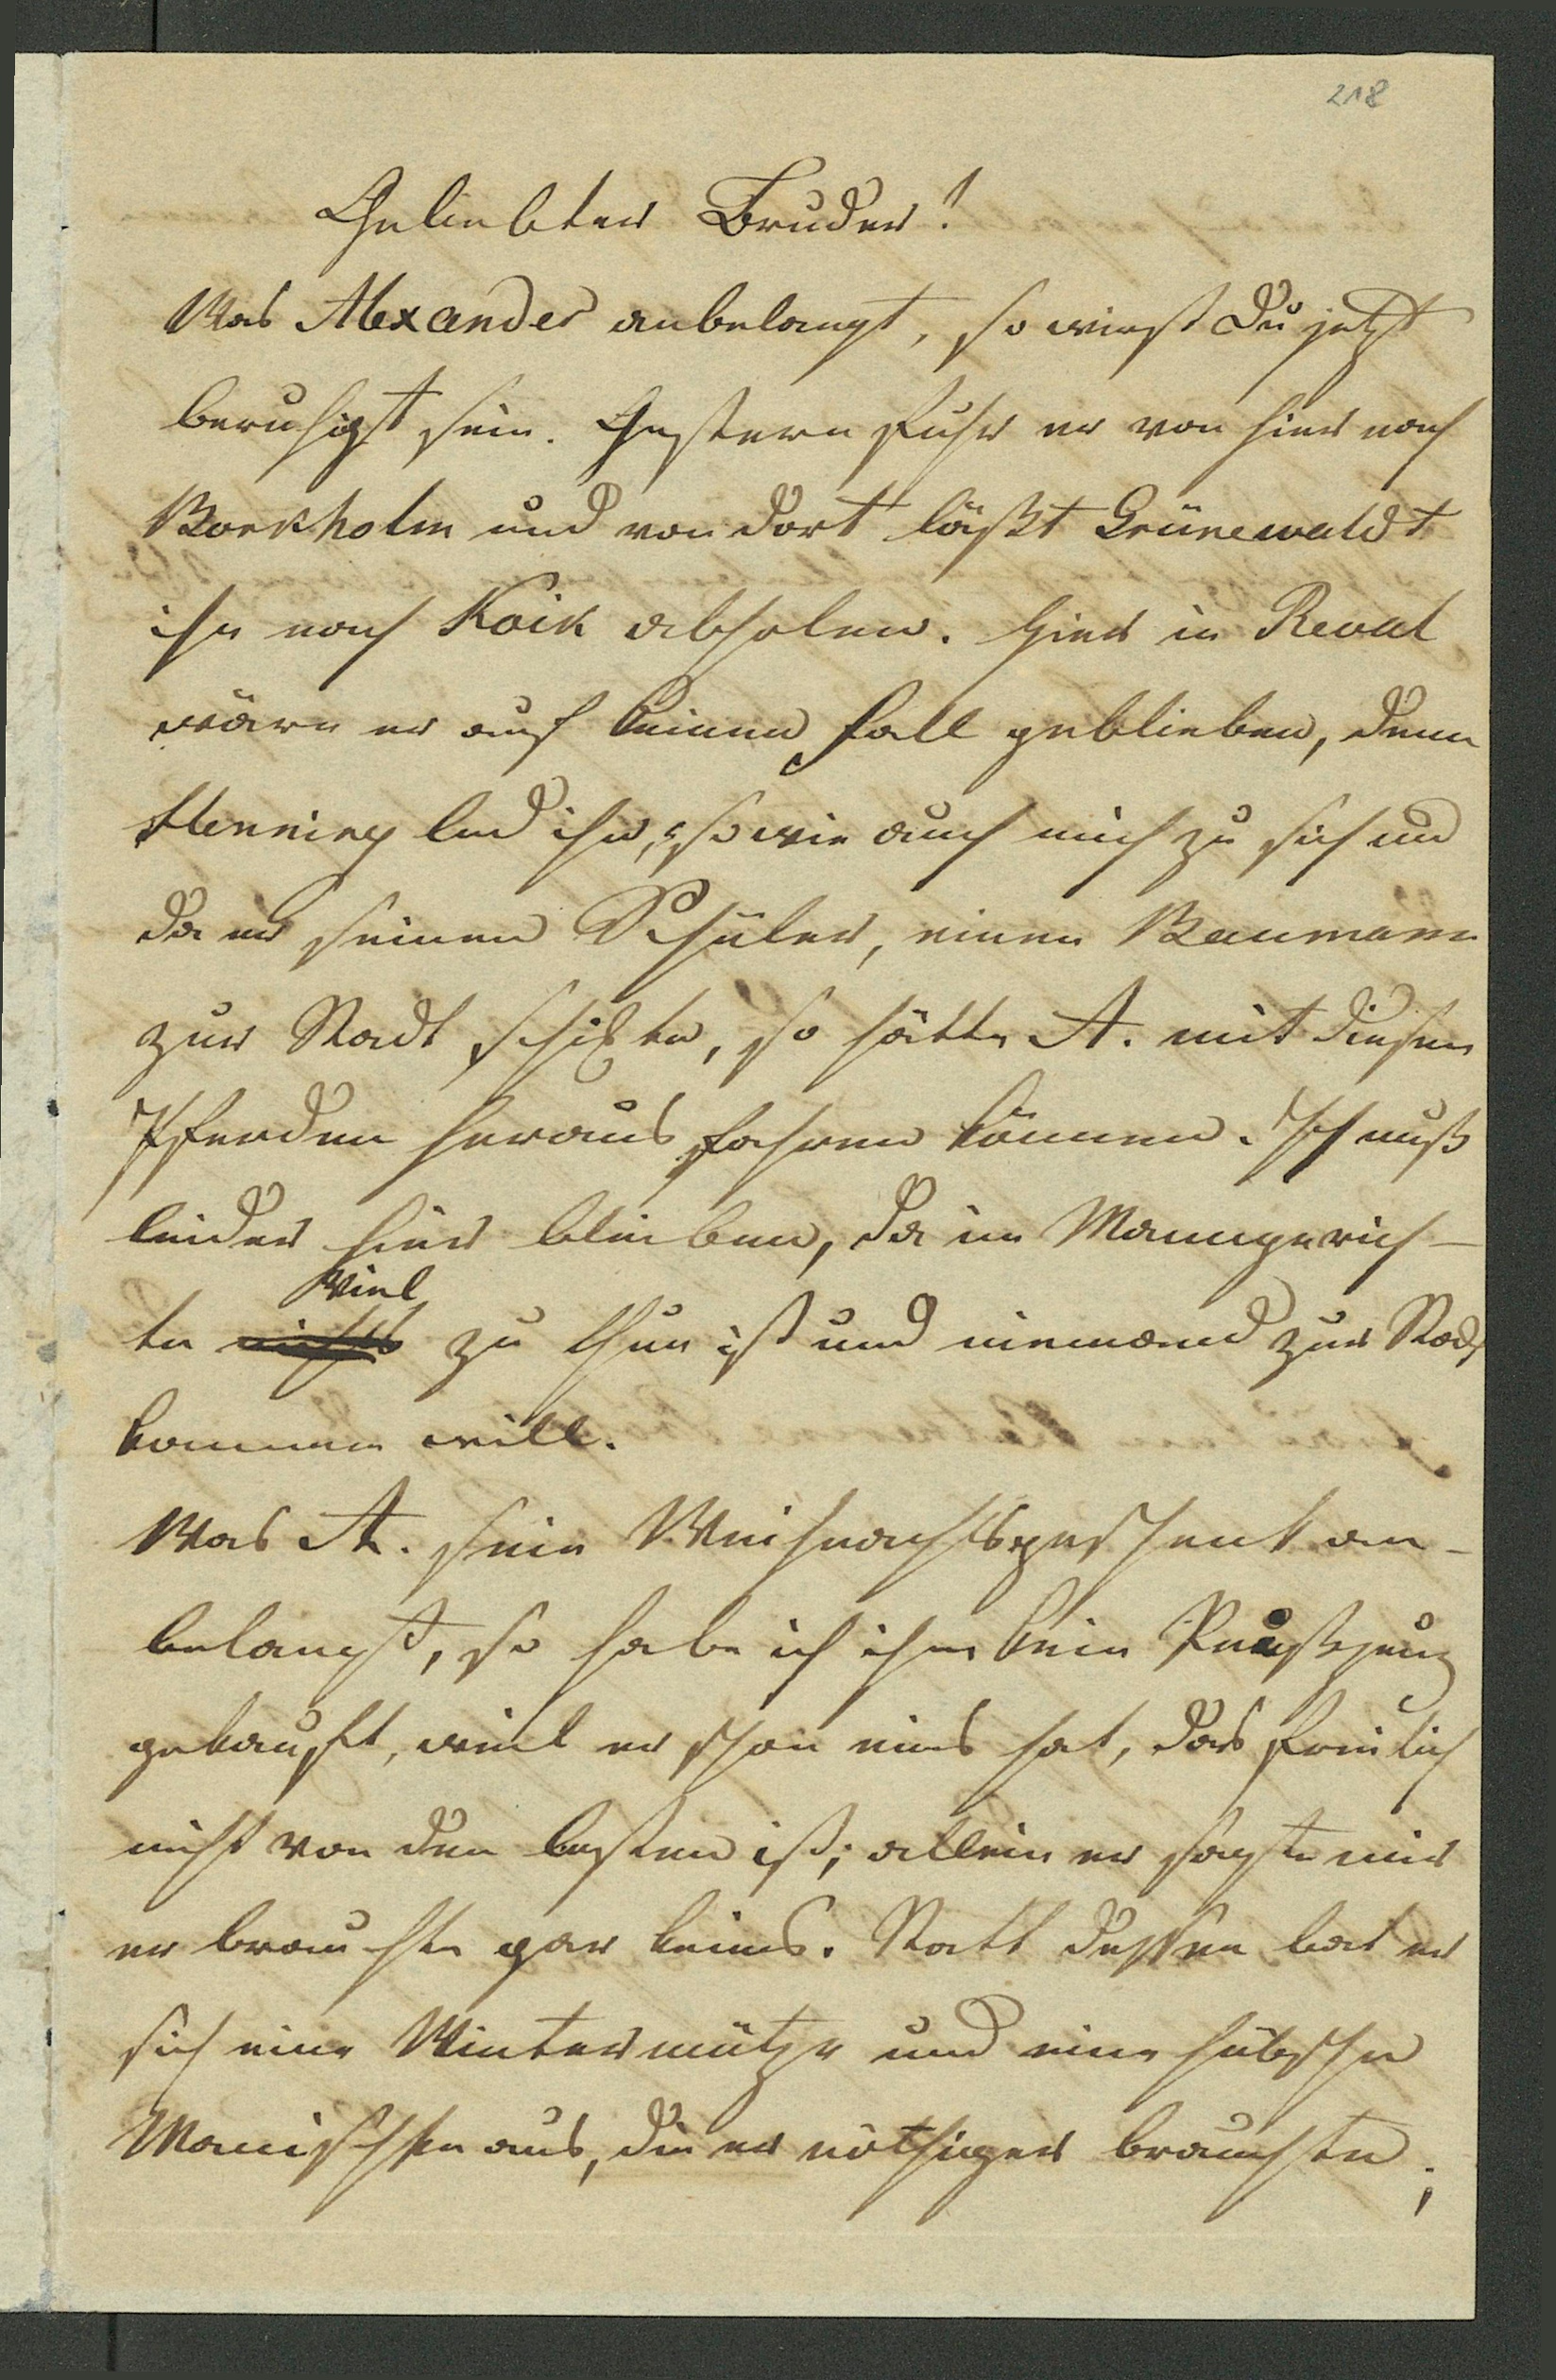 218
Geliebter Bruder!
Was Alexander anbelangt, so wirst Du jetzt
beruhigt sein. Gestern fuhr er von hier nach
Borkholm und von dort läßt Grünewaldt
ihn nach Koik abholen. Hier in Reval
wäre er auf keinen Fall geblieben, denn
Henning lud ihn, sowie auch mich zu sich und
da er seinen Schüler, einen Baumann
zur Stadt schickte, so hätte A. mit diesen
Pferden heraus fahren können. Ich muß
leider hier bleiben, da im Manngerich-
viel
te nichts zu thun ist und niemand zur Stadt
kommen will.
Was A. sein Weihnachtsgeschenk an-
belangt, so habe ich ihm kein Reißzeug
gekauft, weil er schon eins hat, das freilich
nicht von den besten ist; allein er sagte mir
er brauchte gar keins. Statt dessen bat er
sich eine Wintermütze und eine hübsche
aus, die er nöthiger brauchte;